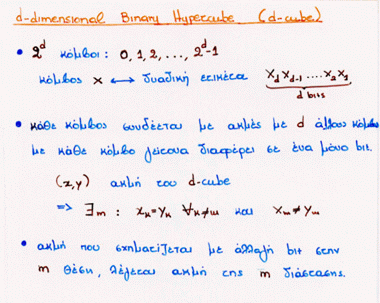 d-dimensional Binary Hypercube (d-cube)
• 2^d κόμβοι: 0, 1, 2, ..., 2^d-1
κόμβος x ⟷ δυαδική ετικέτα x_d x_{d-1} .... x_2 x_1
d bits
• κάθε κόμβος συνδέεται με ακμές με d άλλους κόμβους
με κάθε κόμβο γείτονα διαφέρει σε ένα μόνο bit.
(x,y) ακμή του d-cube
=> ∃m : x_k=y_k ∀k≠m και x_m≠y_m
• ακμή που σχηματίζεται με αλλαγή bit στην
m θέση, λέγεται ακμή της m διάστασης.